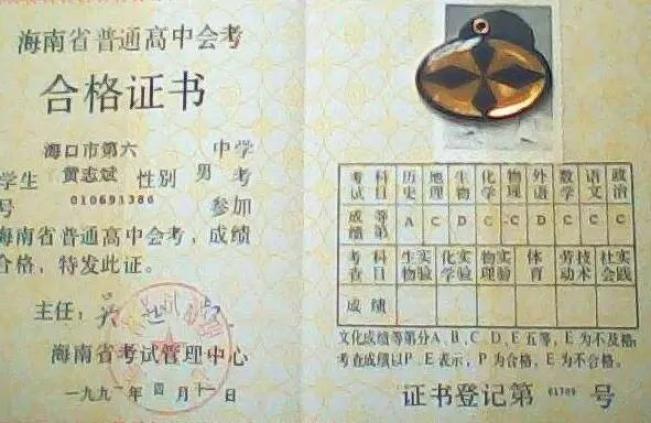 海南省普通高中会考
合格证书
海口市第六 中学
学生 黄志斌 性别 男 考
号 010691380 参加
海南省普通高中会考，成绩
合格，特发此证。
主任：
海南省考试管理中心
一九九一年 四 月 十一 日
考试科目 历史 地理 生物 化学 物理 外语 数学 语文 政治
成绩等第 A C D C C D C C C
考查科目 生物实验 化学实验 物理实验 体育 劳动技术 社会实践
成绩
文化成绩等第分A、B、C、D、E五等，E为不及格；
考查成绩以P、E表示，P为合格，E为不合格。
证书登记第 号